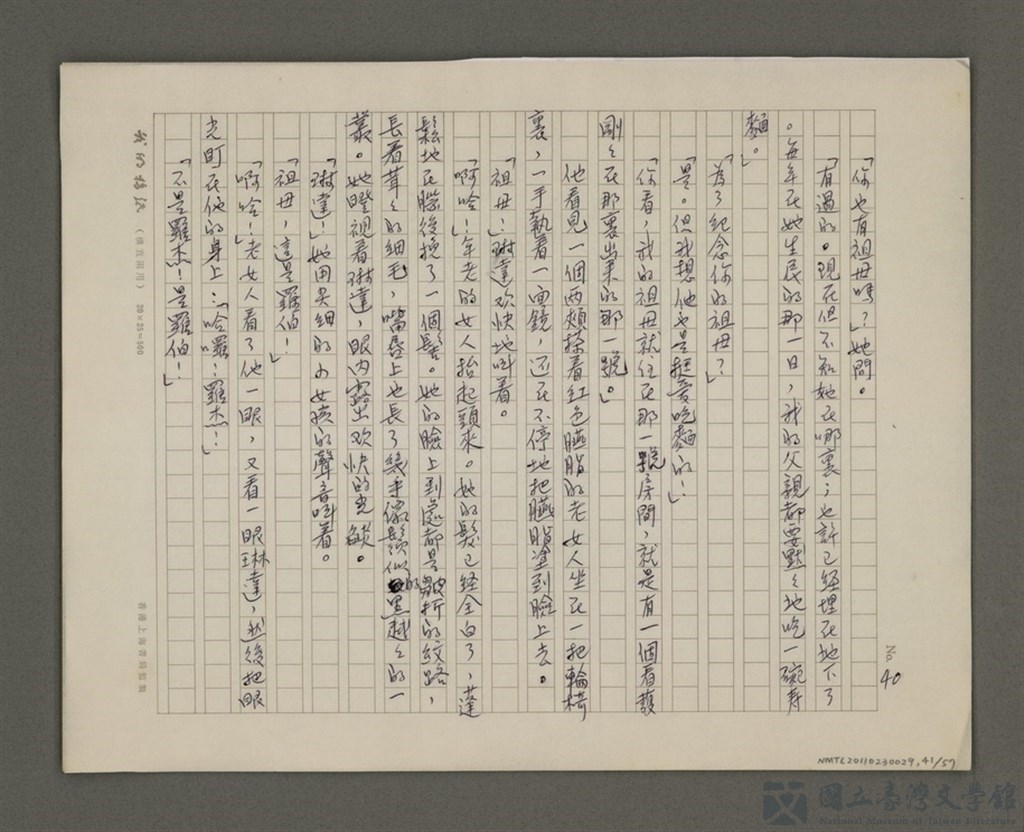 No. 40
「你也有祖母嗎？」她問。
「有過的。現在但不知她在哪裏；也許已經埋在地下了
。每年在她生辰的那一日，我的父親都要默々地吃一碗壽
麵。」
「為了紀念你的祖母？」
「是。但我想他也是挺愛吃麵的！」
「你看，我的祖母就住在那一號房間，就是有一個看護
剛々在那裏出來的那一號。」
他看見一個兩頰搽着紅色臙脂的老女人坐在一把輪椅
裏，一手執着一面鏡，還在不停地把臙脂塗到臉上去。
「祖母！」琳達欢快地叫着。
「啊哈！」年老的女人抬起頭來。她的髮已經全白了，蓬
鬆地在腦後挽了一個髻。她的臉上到處都是皺折的紋路，
長着茸々的細毛，嘴唇上也長了幾乎像鬍似的黑越々的一
叢。她瞪視着琳達，眼內露出欢快的光燄。
「琳達！」她用尖細的小女孩的聲音叫着。
「祖母，這是羅伯！」
「啊哈！」老女人看了他一眼，又看一眼琳達，然後把眼
光盯在他的身上：「哈囉！羅杰！」
「不是羅杰！是羅伯！」
我的稿紙（橫直両用）20×25=500
香港上海書局監製
NMTL20110230029, 41/57
國立臺灣文學館
National Museum of Taiwan Literature